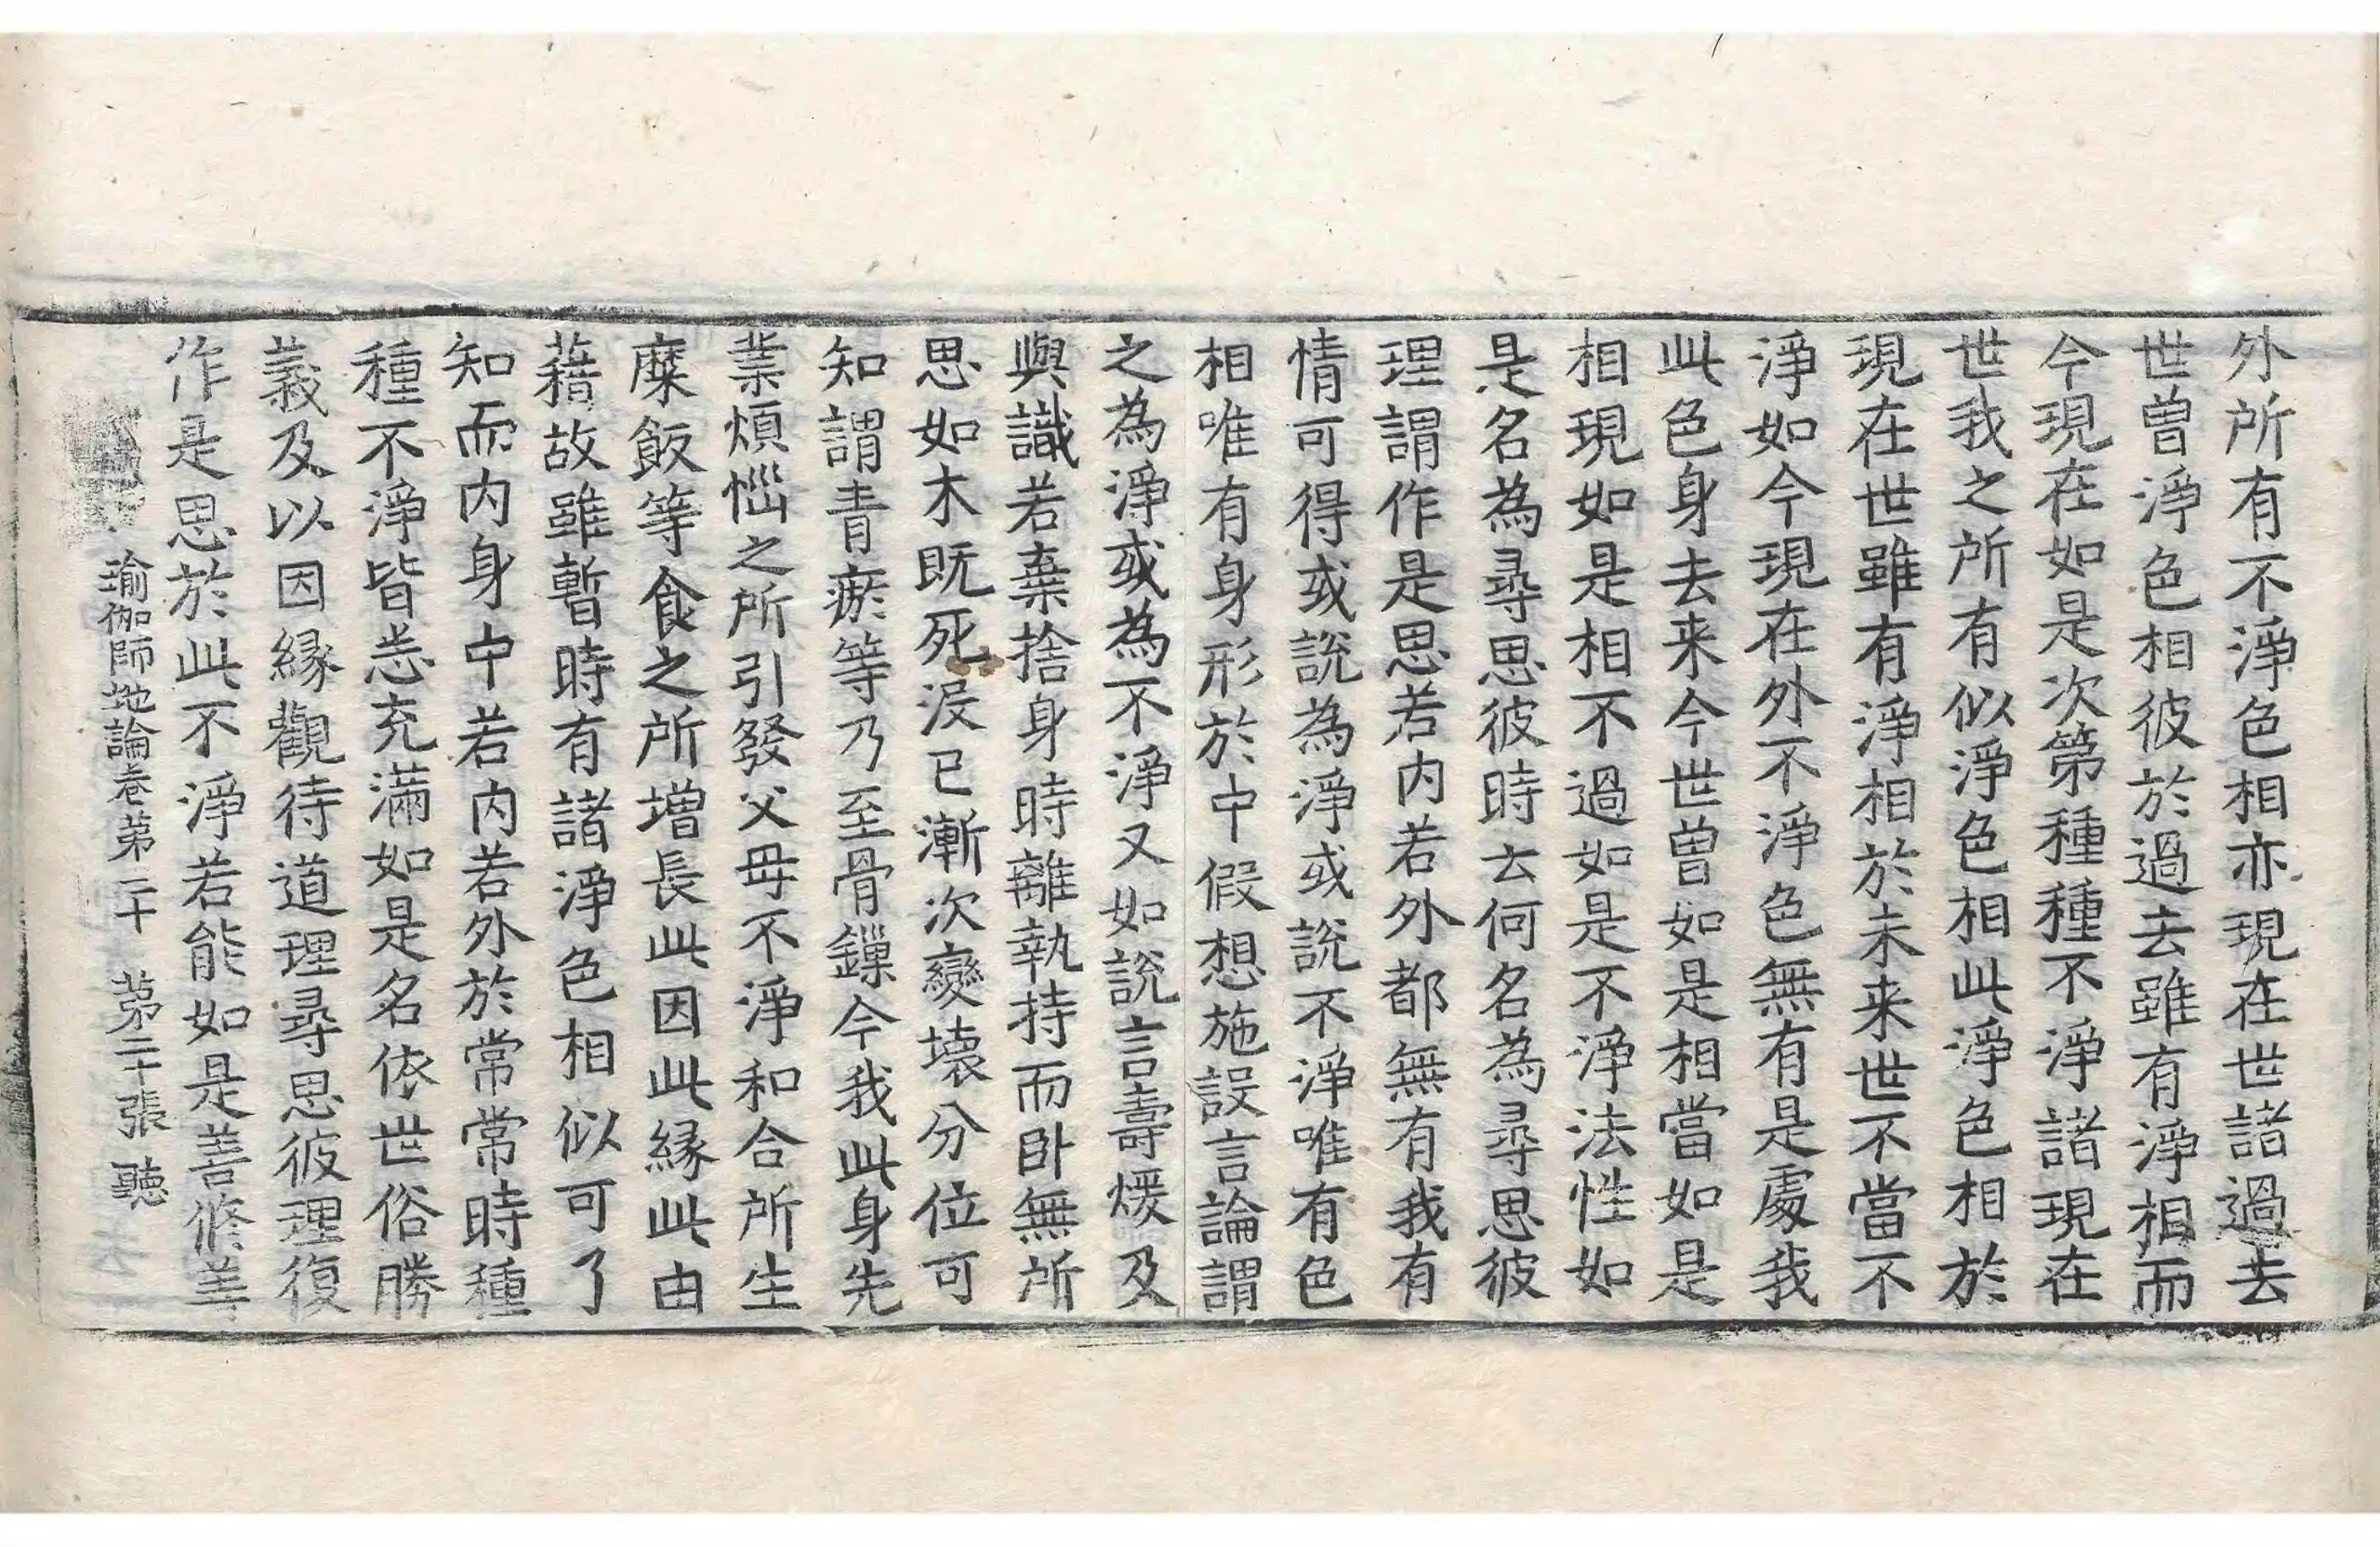 外所有不淨色相亦現在世諸過去
世曾淨色相彼於過去雖有淨相而
今現在如是次第種種不淨諸現在
世我之所有似淨色相此淨色相於
現在世雖有淨相於未来世不當不
淨如今現在外不淨色無有是處我
此色身去来今世曾如是相當如是
相現如是相不過如是不淨法性如
是名為尋思彼時云何名為尋思彼
理謂作是思若内若外都無有我有
情可得或說為淨或說不淨唯有色
相唯有身形於中假想施設言論謂
之為淨或為不淨又如說言壽煖及
與識若棄捨身時離執持而卧無所
思如木既死沒已漸次變壞分位可
知謂青瘀等乃至骨鏁今我此身先
業煩惱之所引發父母不淨和合所生
糜飯等食之所增長此因此緣此由
藉故雖暫時有諸淨色相似可了
知而内身中若内若外於常常時種
種不淨皆悉充滿如是名依世俗勝
義及以因緣觀待道理尋思彼理復
作是思於此不淨若能如是善修善
瑜伽師地論卷第三十　第二十張　聽